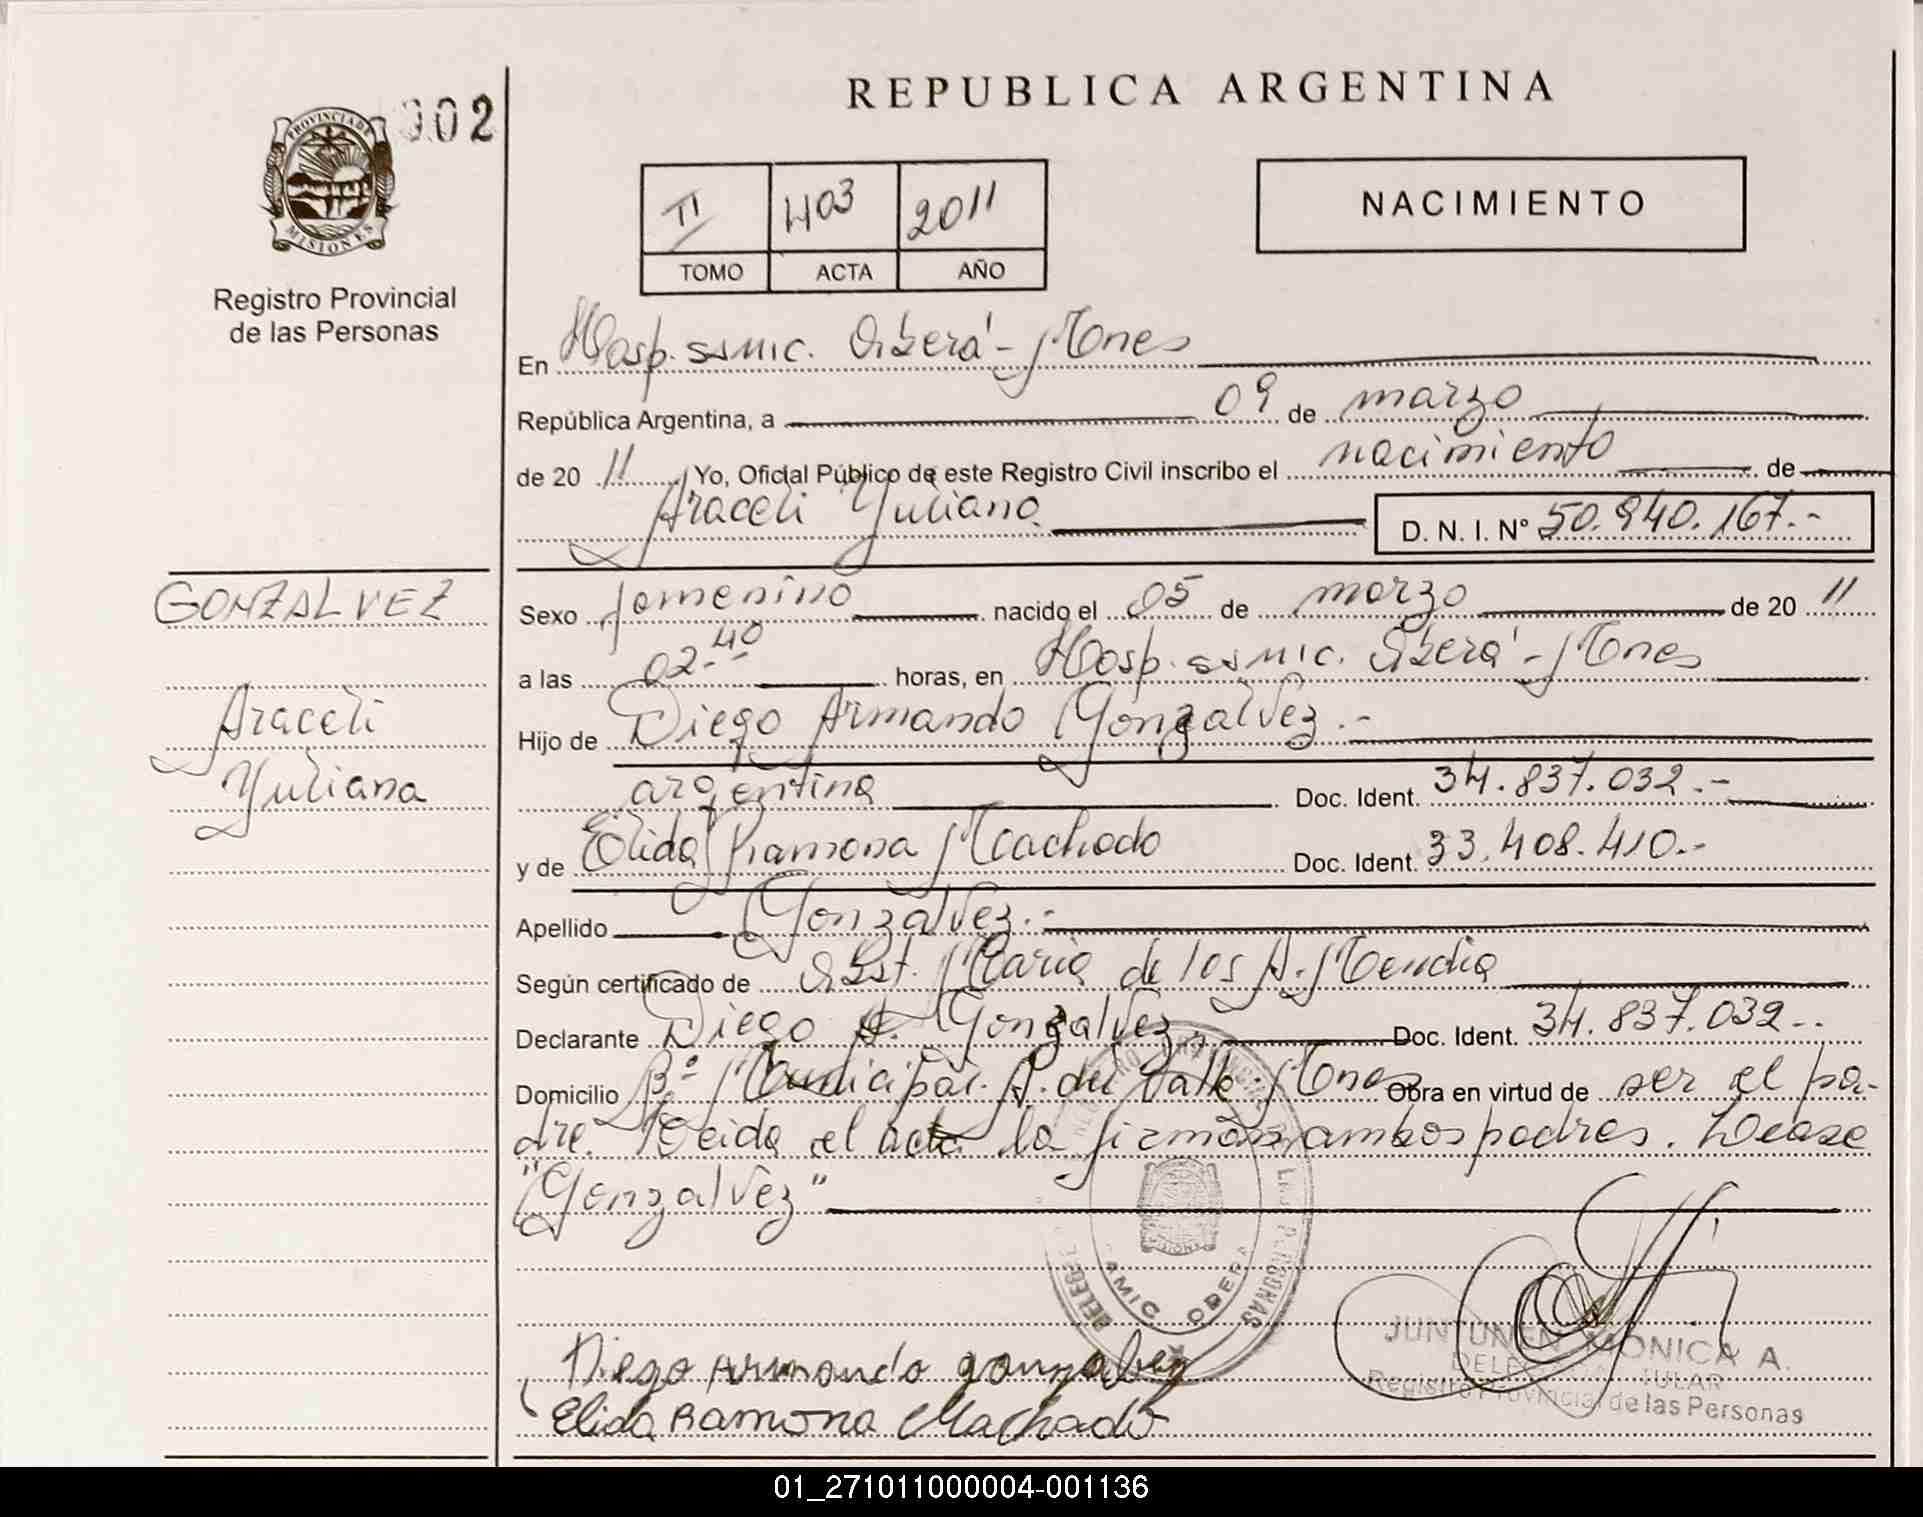 REPUBLICA ARGENTINA
002
PROVINCIA DE
MISIONES
Registro Provincial
de las Personas
II 403 2011
TOMO ACTA AÑO
NACIMIENTO
En Hosp. SAMIC. Oberá - Mnes
República Argentina, a 09 de marzo
de 20 11 Yo, Oficial Público de este Registro Civil inscribo el nacimiento de
Araceli Yuliana D. N. I. Nº 50.940.167.-
GONZALVEZ
Araceli
Yuliana
Sexo femenino nacido el 05 de marzo de 20 11
a las 02.40 horas, en Hosp. SAMIC. Oberá - Mnes
Hijo de Diego Armando Gonzalvez.-
argentina Doc. Ident. 34.837.032.-
y de Elida Ramona Machado Doc. Ident. 33.408.410.-
Apellido Gonzalvez.-
Según certificado de Obst. Maria de los A. Mendia
Declarante Diego A. Gonzalvez. Doc. Ident. 34.837.032.-
Domicilio Bº Municipal. A. del Valle Mnes Obra en virtud de ser el pa-
dre. Leida el acta la firman ambos padres. Lease
"Gonzalvez"
LAS PERSONAS
SAMIC OBERA
Diego Armando gonzalvez
Elida Ramona Machado
JUNTUNEN MONICA A.
DELEGADA TITULAR
Registro Provincial de las Personas
01_271011000004-001136